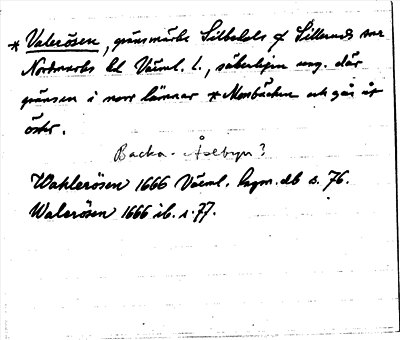 * Valerösen, gränsmärke Silbodals o/ Silleruds snr
Nordmarks hd Värml. l., säkerligen ung. där
gränsen i norr lämnar * Mosbäcken och går åt
öster.
Backa - Åselbyn?
Wahlerösen 1666 Värml. lagm.db s. 76.
Walerösen 1666 ib. s. 77.